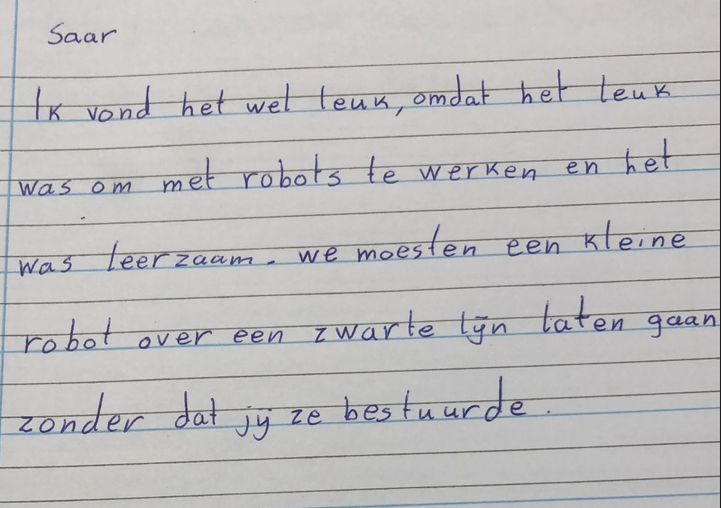 Saar
Ik vond het wel leuk, omdat het leuk
was om met robots te werken en het
was leerzaam. we moesten een kleine
robot over een zwarte lijn laten gaan
zonder dat jij ze bestuurde.